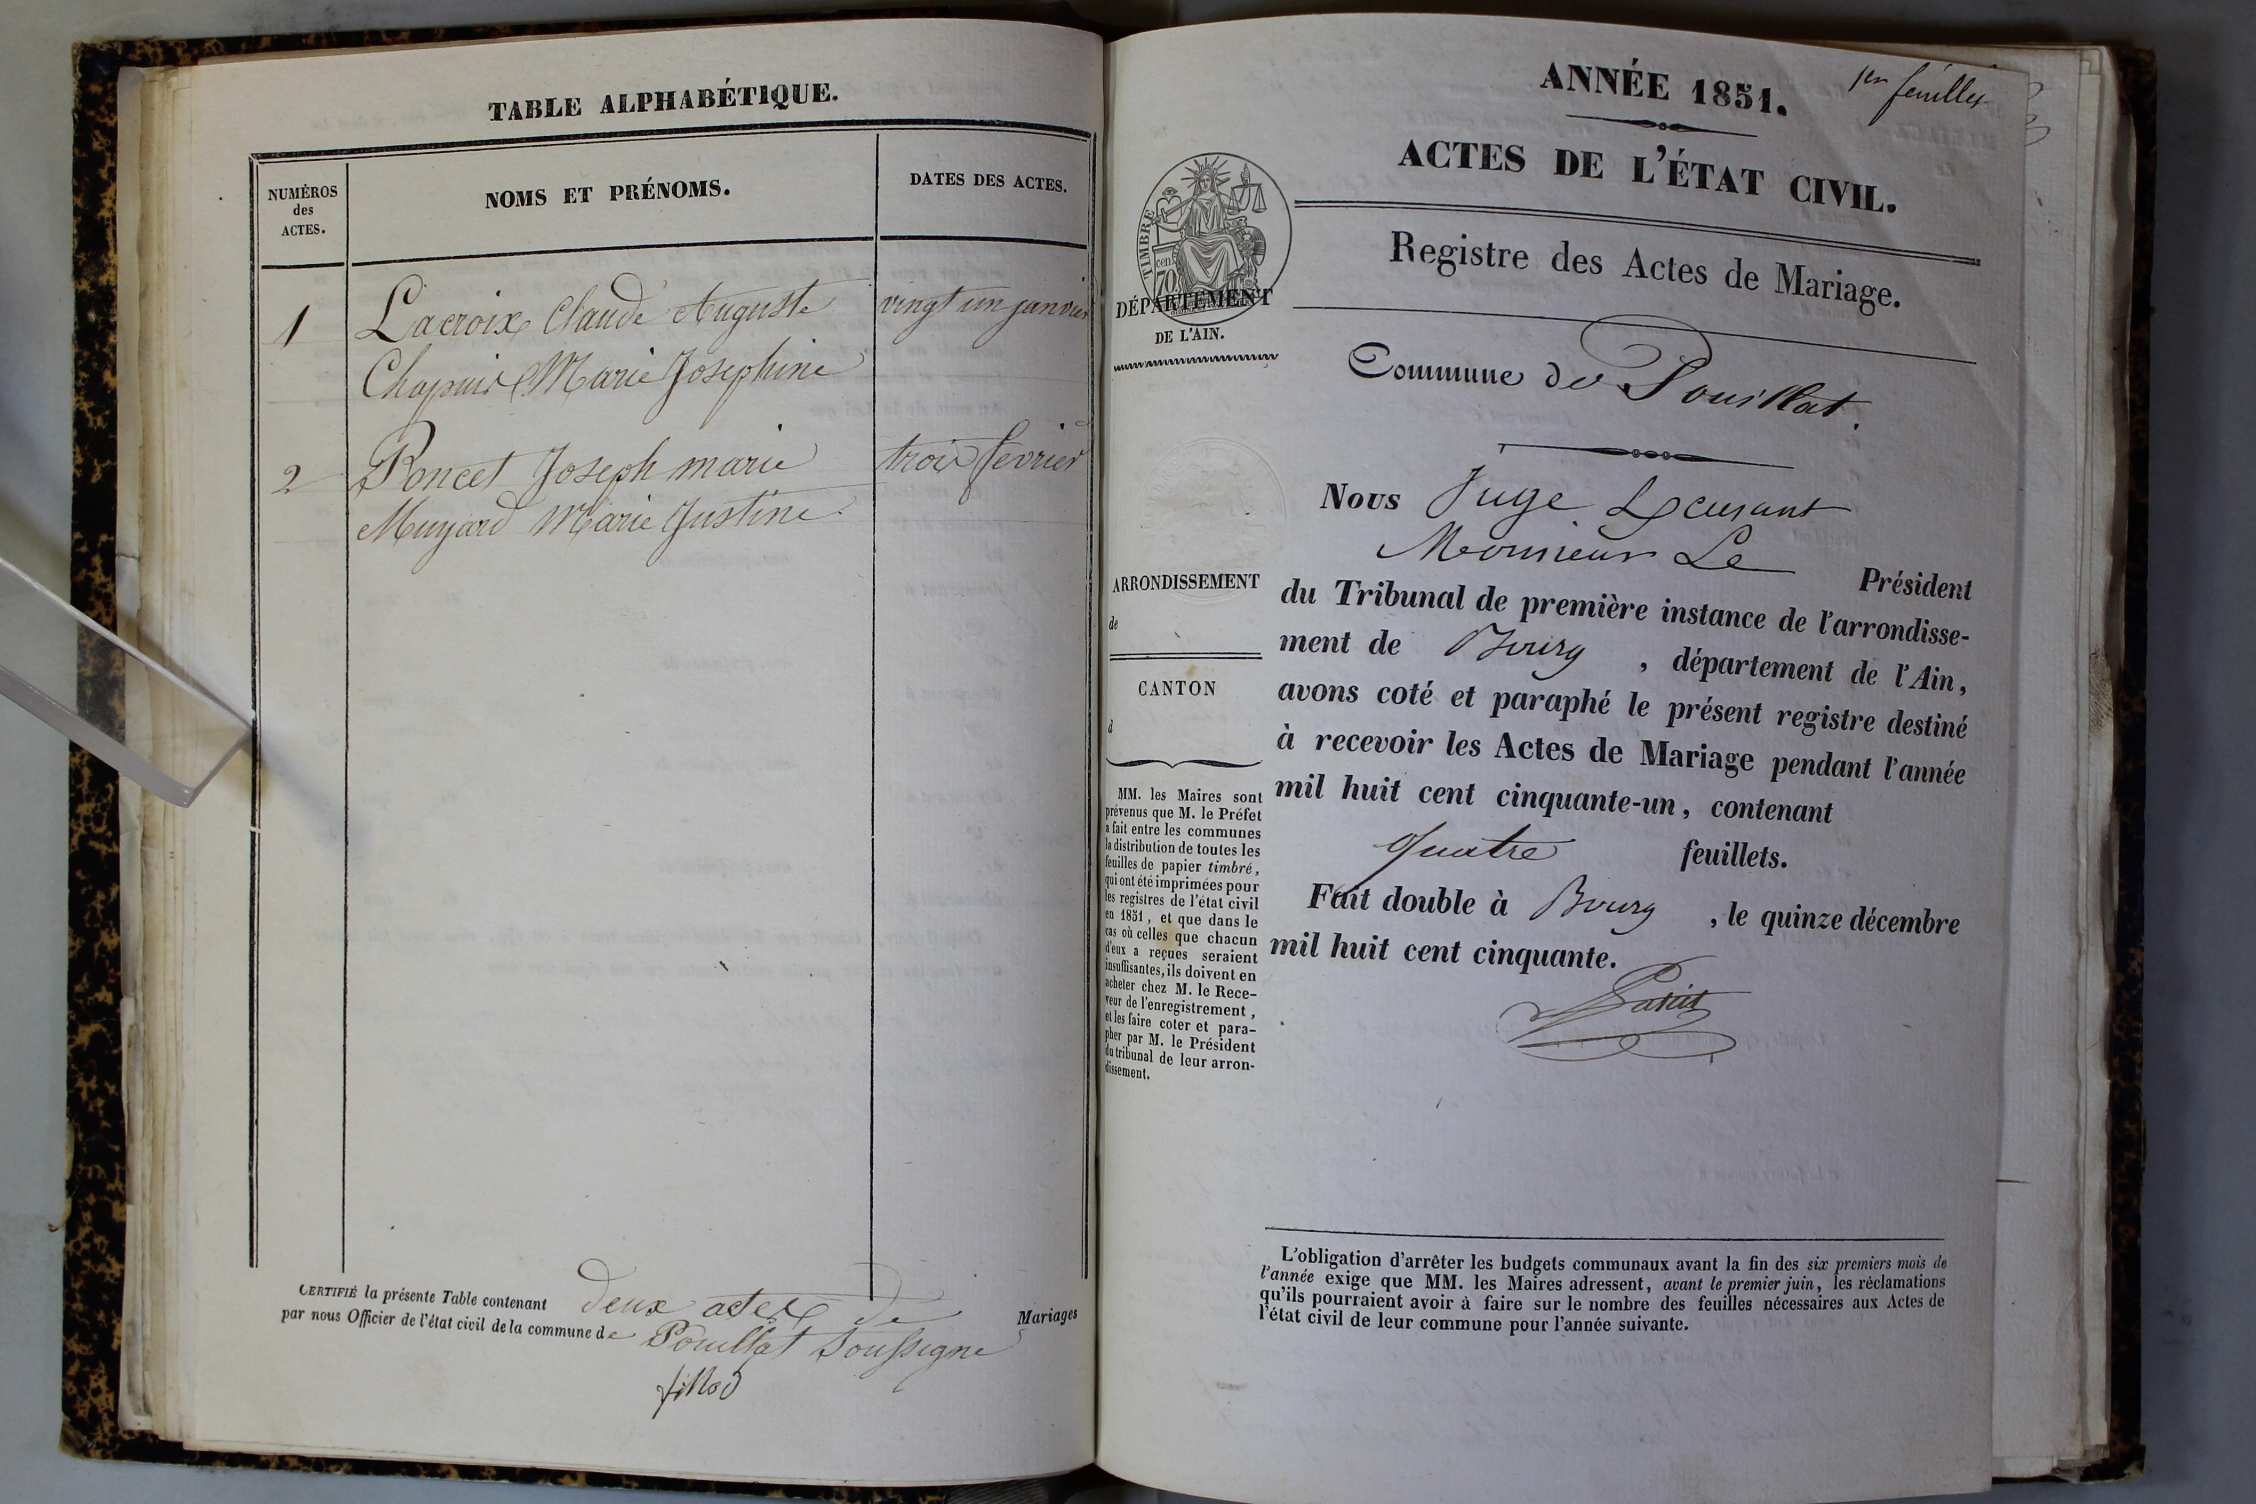 TABLE ALPHABÉTIQUE.
NUMÉROS
des
ACTES.
NOMS ET PRÉNOMS.
DATES DES ACTES.
1
Lacroix Claude Auguste
vingt un janvier
Chapuis Marie Josephine
2
Poncet Joseph marie
trois fevrier
Muyard Marie Justine
CERTIFIÉ la présente Table contenant deux actes de Mariages
par nous Officier de l'état civil de la commune de Pouillat Soussigne
fillod
1er feuillet
ANNÉE 1851.
ACTES DE L'ÉTAT CIVIL.
Registre des Actes de Mariage.
TIMBRE
cent
70
DÉPARTEMENT
DE L'AIN.
Commune de Pouillat.
Nous Juge
Monsieur Le Président
du Tribunal de première instance de l'arrondisse-
ment de Bourg, département de l'Ain,
avons coté et paraphé le présent registre destiné
à recevoir les Actes de Mariage pendant l'année
mil huit cent cinquante-un, contenant
quatre feuillets.
Fait double à Bourg, le quinze décembre
mil huit cent cinquante.
ARRONDISSEMENT
de
CANTON
d
MM. les Maires sont
prévenus que M. le Préfet
a fait entre les communes
la distribution de toutes les
feuilles de papier timbré,
qui ont été imprimées pour
les registres de l'état civil
en 1851, et que dans le
cas où celles que chacun
d'eux a reçues seraient
insuffisantes, ils doivent en
acheter chez M. le Rece-
veur de l'enregistrement,
et les faire coter et para-
pher par M. le Président
du tribunal de leur arron-
dissement.
L'obligation d'arrêter les budgets communaux avant la fin des six premiers mois de
l'année exige que MM. les Maires adressent, avant le premier juin, les réclamations
qu'ils pourraient avoir à faire sur le nombre des feuilles nécessaires aux Actes de
l'état civil de leur commune pour l'année suivante.